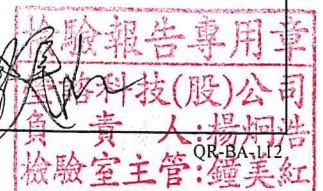 檢驗報告專用章
科技(股)公司
負責人:楊炯浩
QR-BA-L12
檢驗室主管:鐘美紅